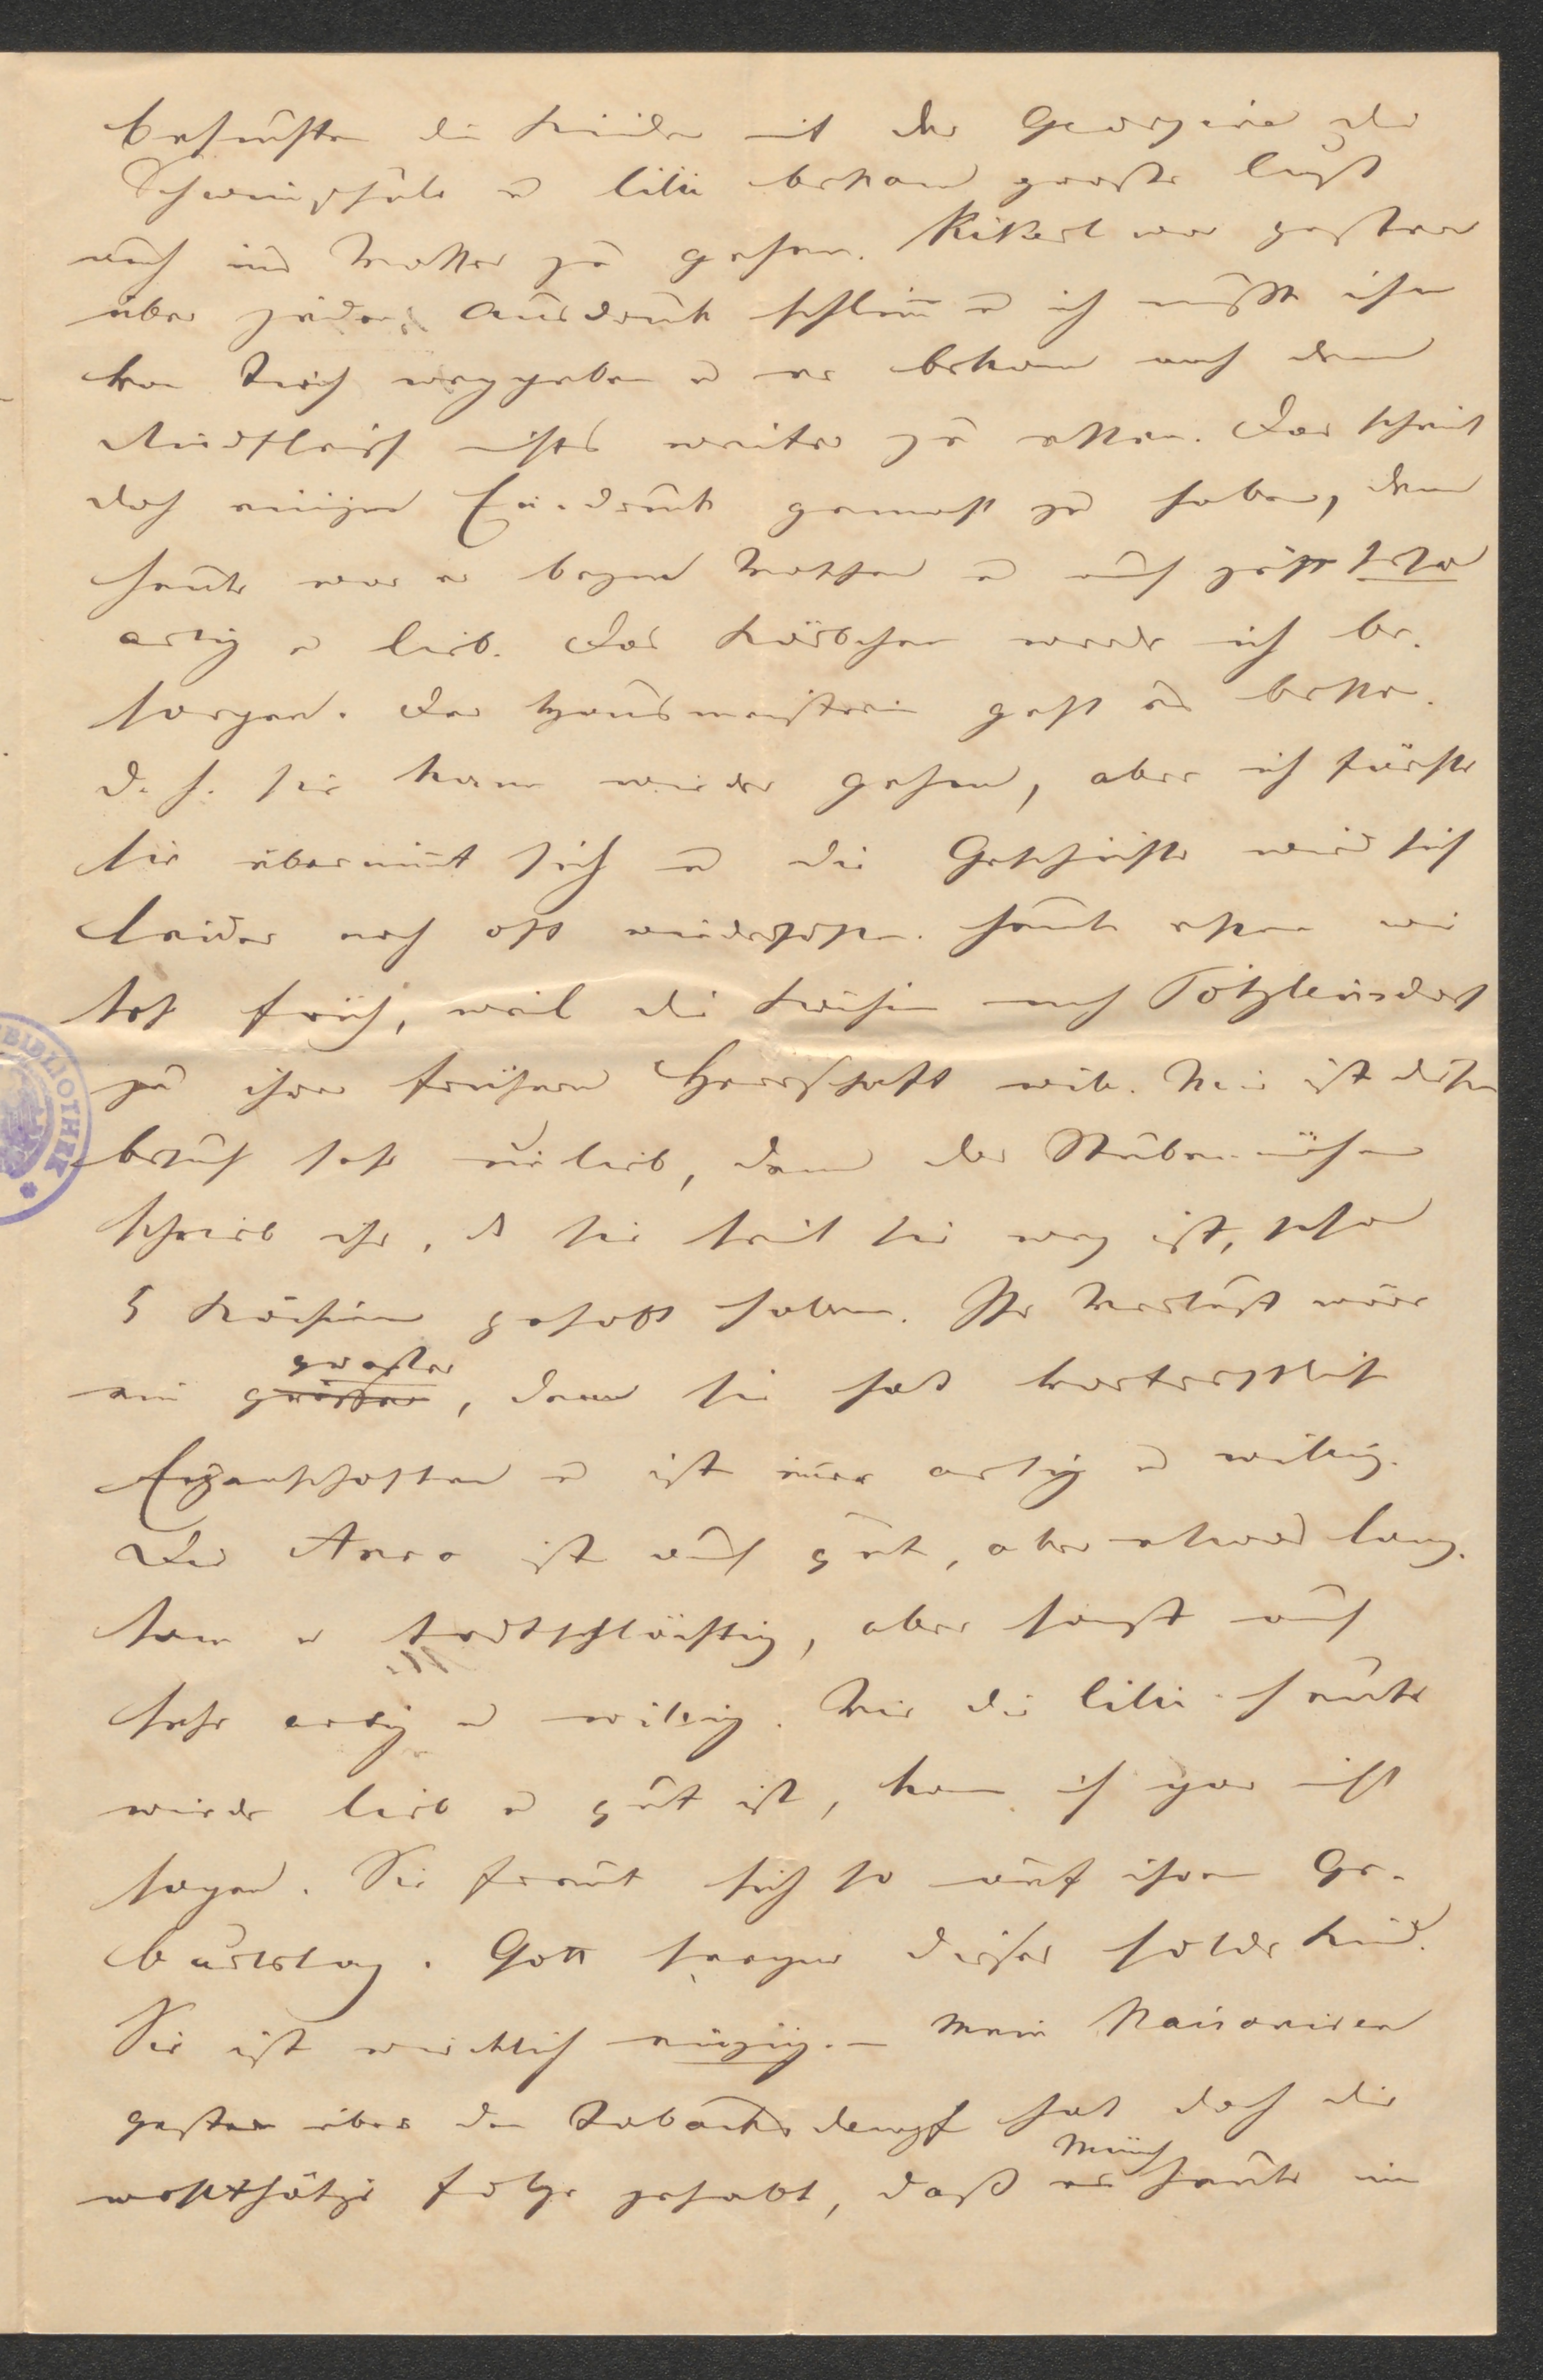 besuchten die Kinder mit der Georgine die
Schwimschule u Lili bekam große Lust
auch ins Wasser zu gehen. Kikerl war gestern
über jeden Ausdruck schlim̄ u ich mußte ihn
vom Tisch weggeben u er bekam nach dem
Rindfleisch nichts weiter zu essen. Das scheint
doch einigen Eindruck gemacht zu haben, denn
heute war er beym Waschen u auch jetzt sehr
artig u lieb. Das Körbchen werde ich be-
sorgen. Der Hausmeisterin geht es besser.
d. h. sie kann wieder gehen, aber ich fürchte
sie übernim̄t sich u die Geschichte wird sich
leider noch oft wiederholen. Heute essen wir
sehr früh, weil die Köchin nach Pötzleinsdorf
zu ihrer früheren Herrschaft will. Mir ist dieser
Besuch sehr unlieb, denn das Stubenmädchen
schrieb ihr, daß sie seit sie weg ist, schon
5 Köchinen gehabt haben. Ihr Verlust wäre
ein großer, denn sie hat vortreffliche
Eigenschaften u ist im̄er artig u willig.
Die Anna ist auch gut, aber etwas lang-
sam u todtschläfrig, aber sonst auch
sehr artig u willig. Wie die Lili heute
wieder lieb u gut ist, kann ich gar nicht
sagen. Sie freut sich so auf ihren Ge-
burtstag. Gott segne dieses holde Kind.
Sie ist wirklich einzig. – Mein Raisoniren
gestern über den Tabacksdampf hat doch die
wohlthätige Folge gehabt, daß Münch heute im